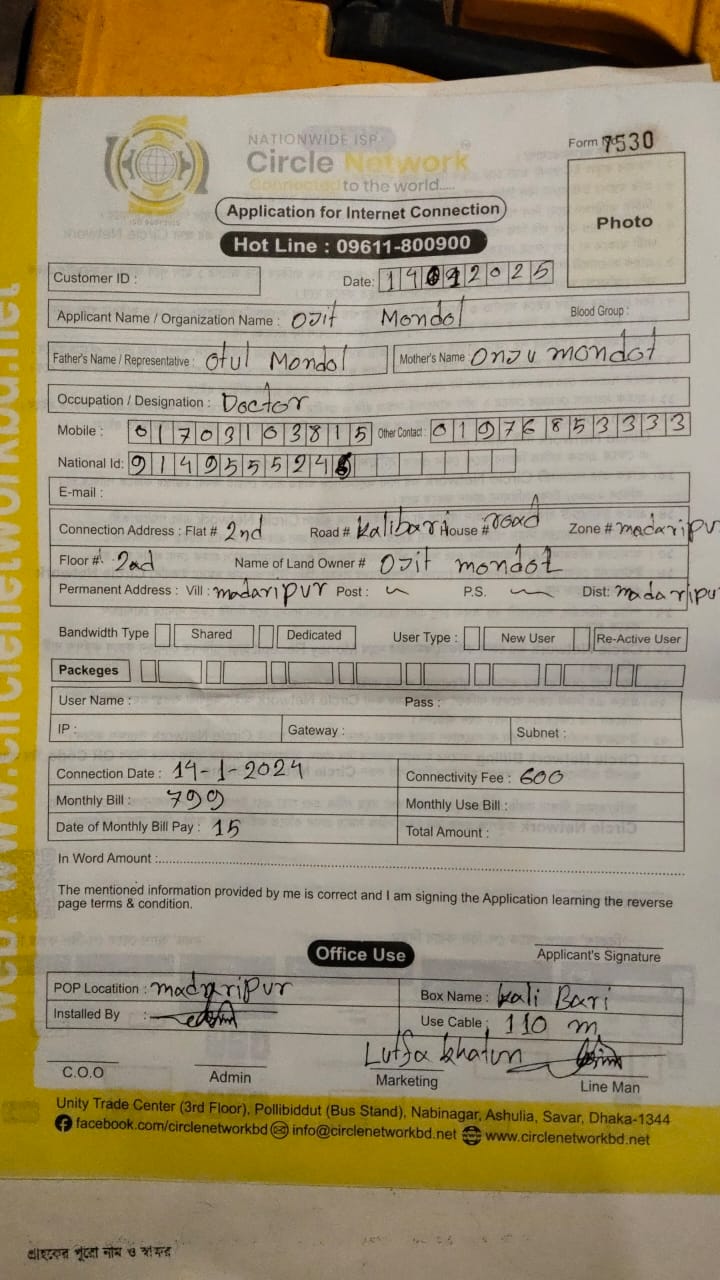 NATIONWIDE ISP
Circle Network
Connected to the world.....
ISO 9001:2015
Form No 7530
Photo
Application for Internet Connection
Hot Line : 09611-800900
Customer ID :
Date: 14012025
Applicant Name / Organization Name : OJit Mondol
Blood Group :
Father's Name / Representative : Otul Mondol
Mother's Name Onju mondol
Occupation / Designation : Doctor
Mobile : 01703103815 Other Contact : 01976853333
National Id: 914955524
E-mail :
Connection Address : Flat # 2nd Road # Kalibari House # road Zone # madaripur
Floor # 2nd Name of Land Owner # OJit mondol
Permanent Address : Vill : madaripur Post : P.S. Dist: madaripu
Bandwidth Type Shared Dedicated User Type : New User Re-Active User
Packeges
User Name : Pass :
IP : Gateway : Subnet :
Connection Date : 14-1-2024 Connectivity Fee : 600
Monthly Bill : 799 Monthly Use Bill :
Date of Monthly Bill Pay : 15 Total Amount :
In Word Amount :
The mentioned information provided by me is correct and I am signing the Application learning the reverse
page terms & condition.
Office Use
Applicant's Signature
POP Locatition : madaripur Box Name : Kali Bari
Installed By : Use Cable : 110 m
Lutfa khatun
C.O.O Admin Marketing Line Man
Unity Trade Center (3rd Floor), Pollibiddut (Bus Stand), Nabinagar, Ashulia, Savar, Dhaka-1344
facebook.com/circlenetworkbd info@circlenetworkbd.net www.circlenetworkbd.net
web: www.circlenetworkbd.net
গ্রাহকের পুরো নাম ও স্বাক্ষর